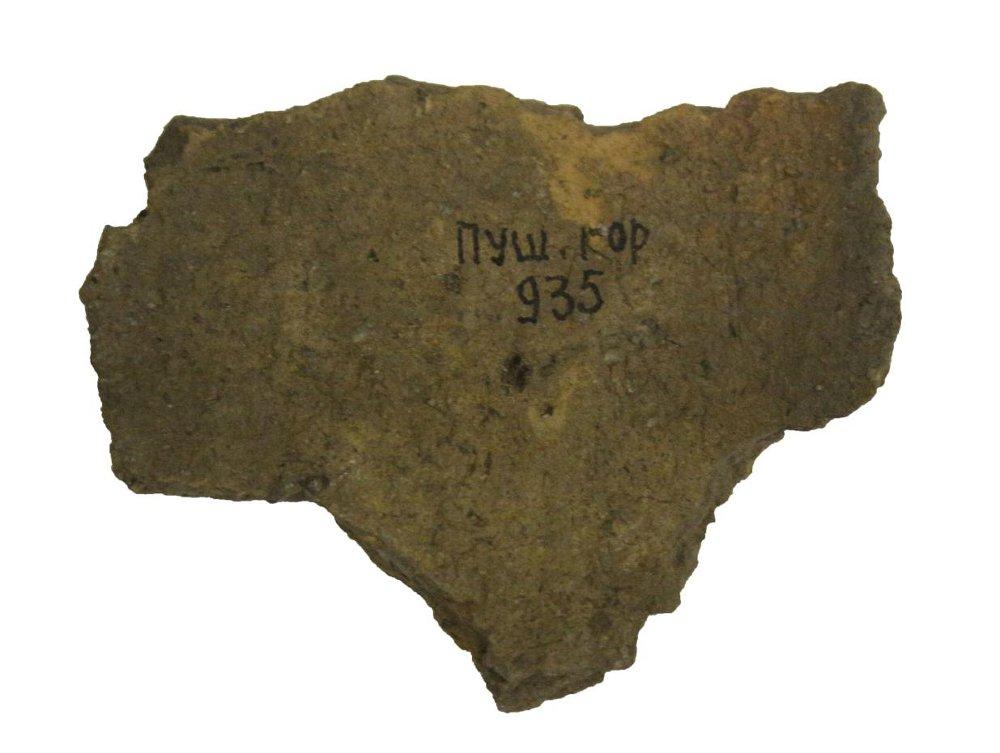 ПУШ. КОР
935